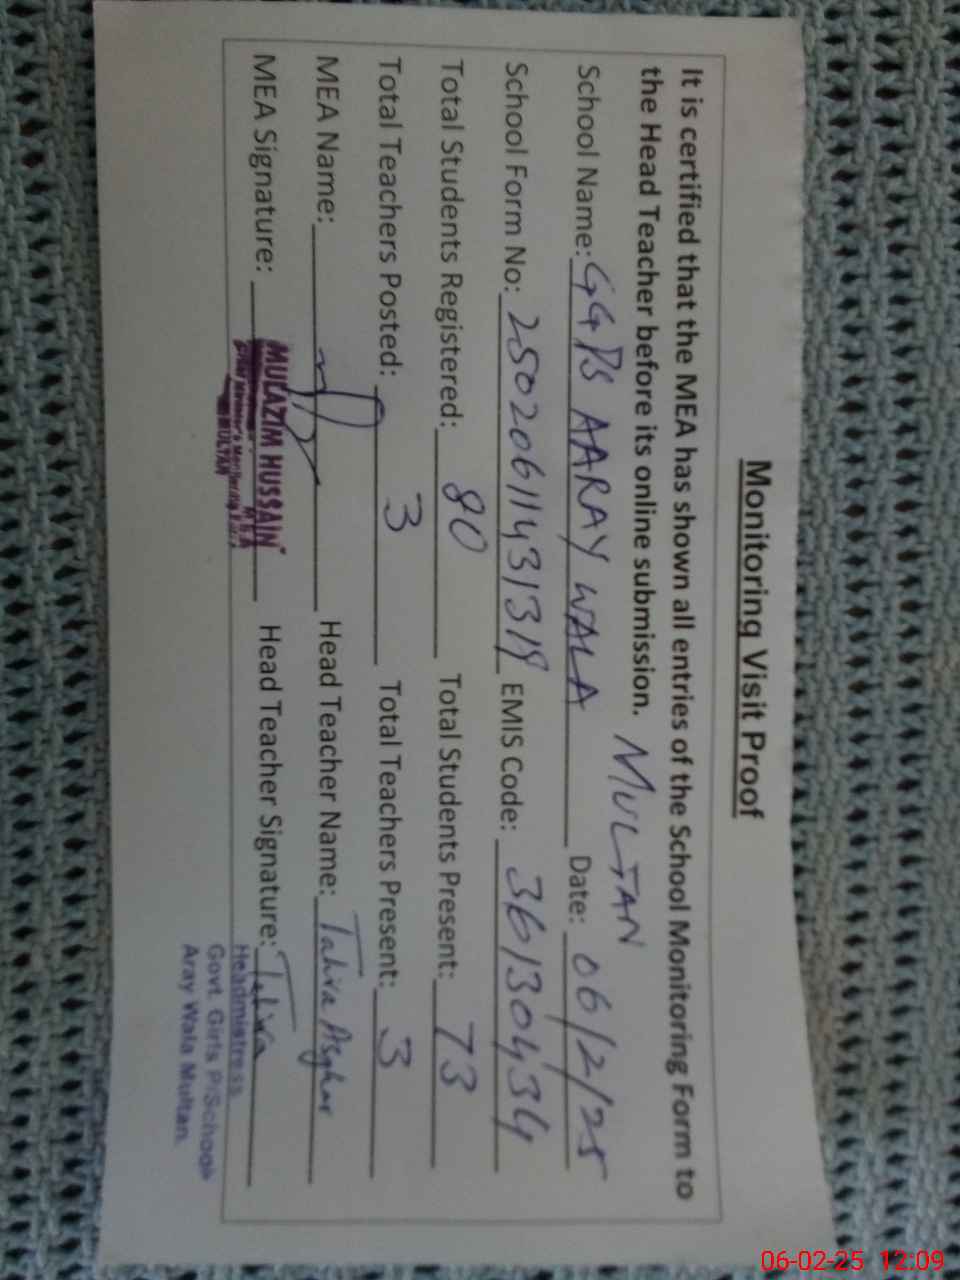 Monitoring Visit Proof
It is certified that the MEA has shown all entries of the School Monitoring Form to
the Head Teacher before its online submission. MULTAN
School Name: GGPS AARAY WALA Date: 06/2/25
School Form No: EMIS Code: 36130434
Total Students Registered: 80 Total Students Present: 73
Total Teachers Posted: 3 Total Teachers Present: 3
MEA Name: Head Teacher Name: Tahira Asghar
MEA Signature: MULAZIM HUSSAIN Head Teacher Signature: Tahira
M.E.A
MULTAN
Headmistress
Govt. Girls P/School
Aray Wala Multan.
06-02-25 12:09